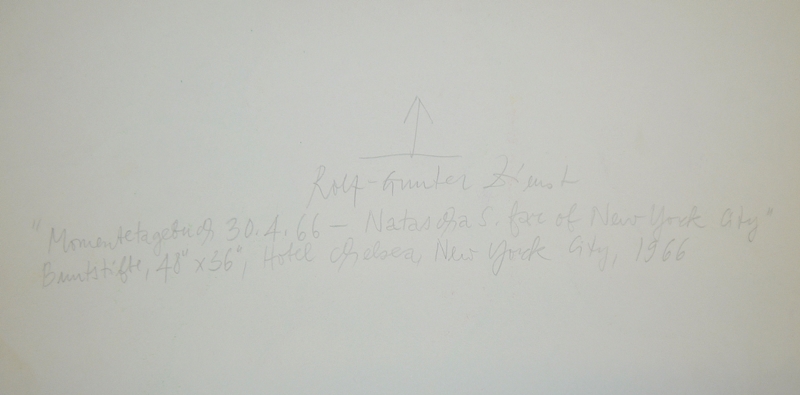 Rolf-Gunter Dienst
"Momentetagebuch 30.4.66 – Natascha S. face of New York City"
Buntstifte, 48" x 36", Hotel Chelsea, New York City, 1966